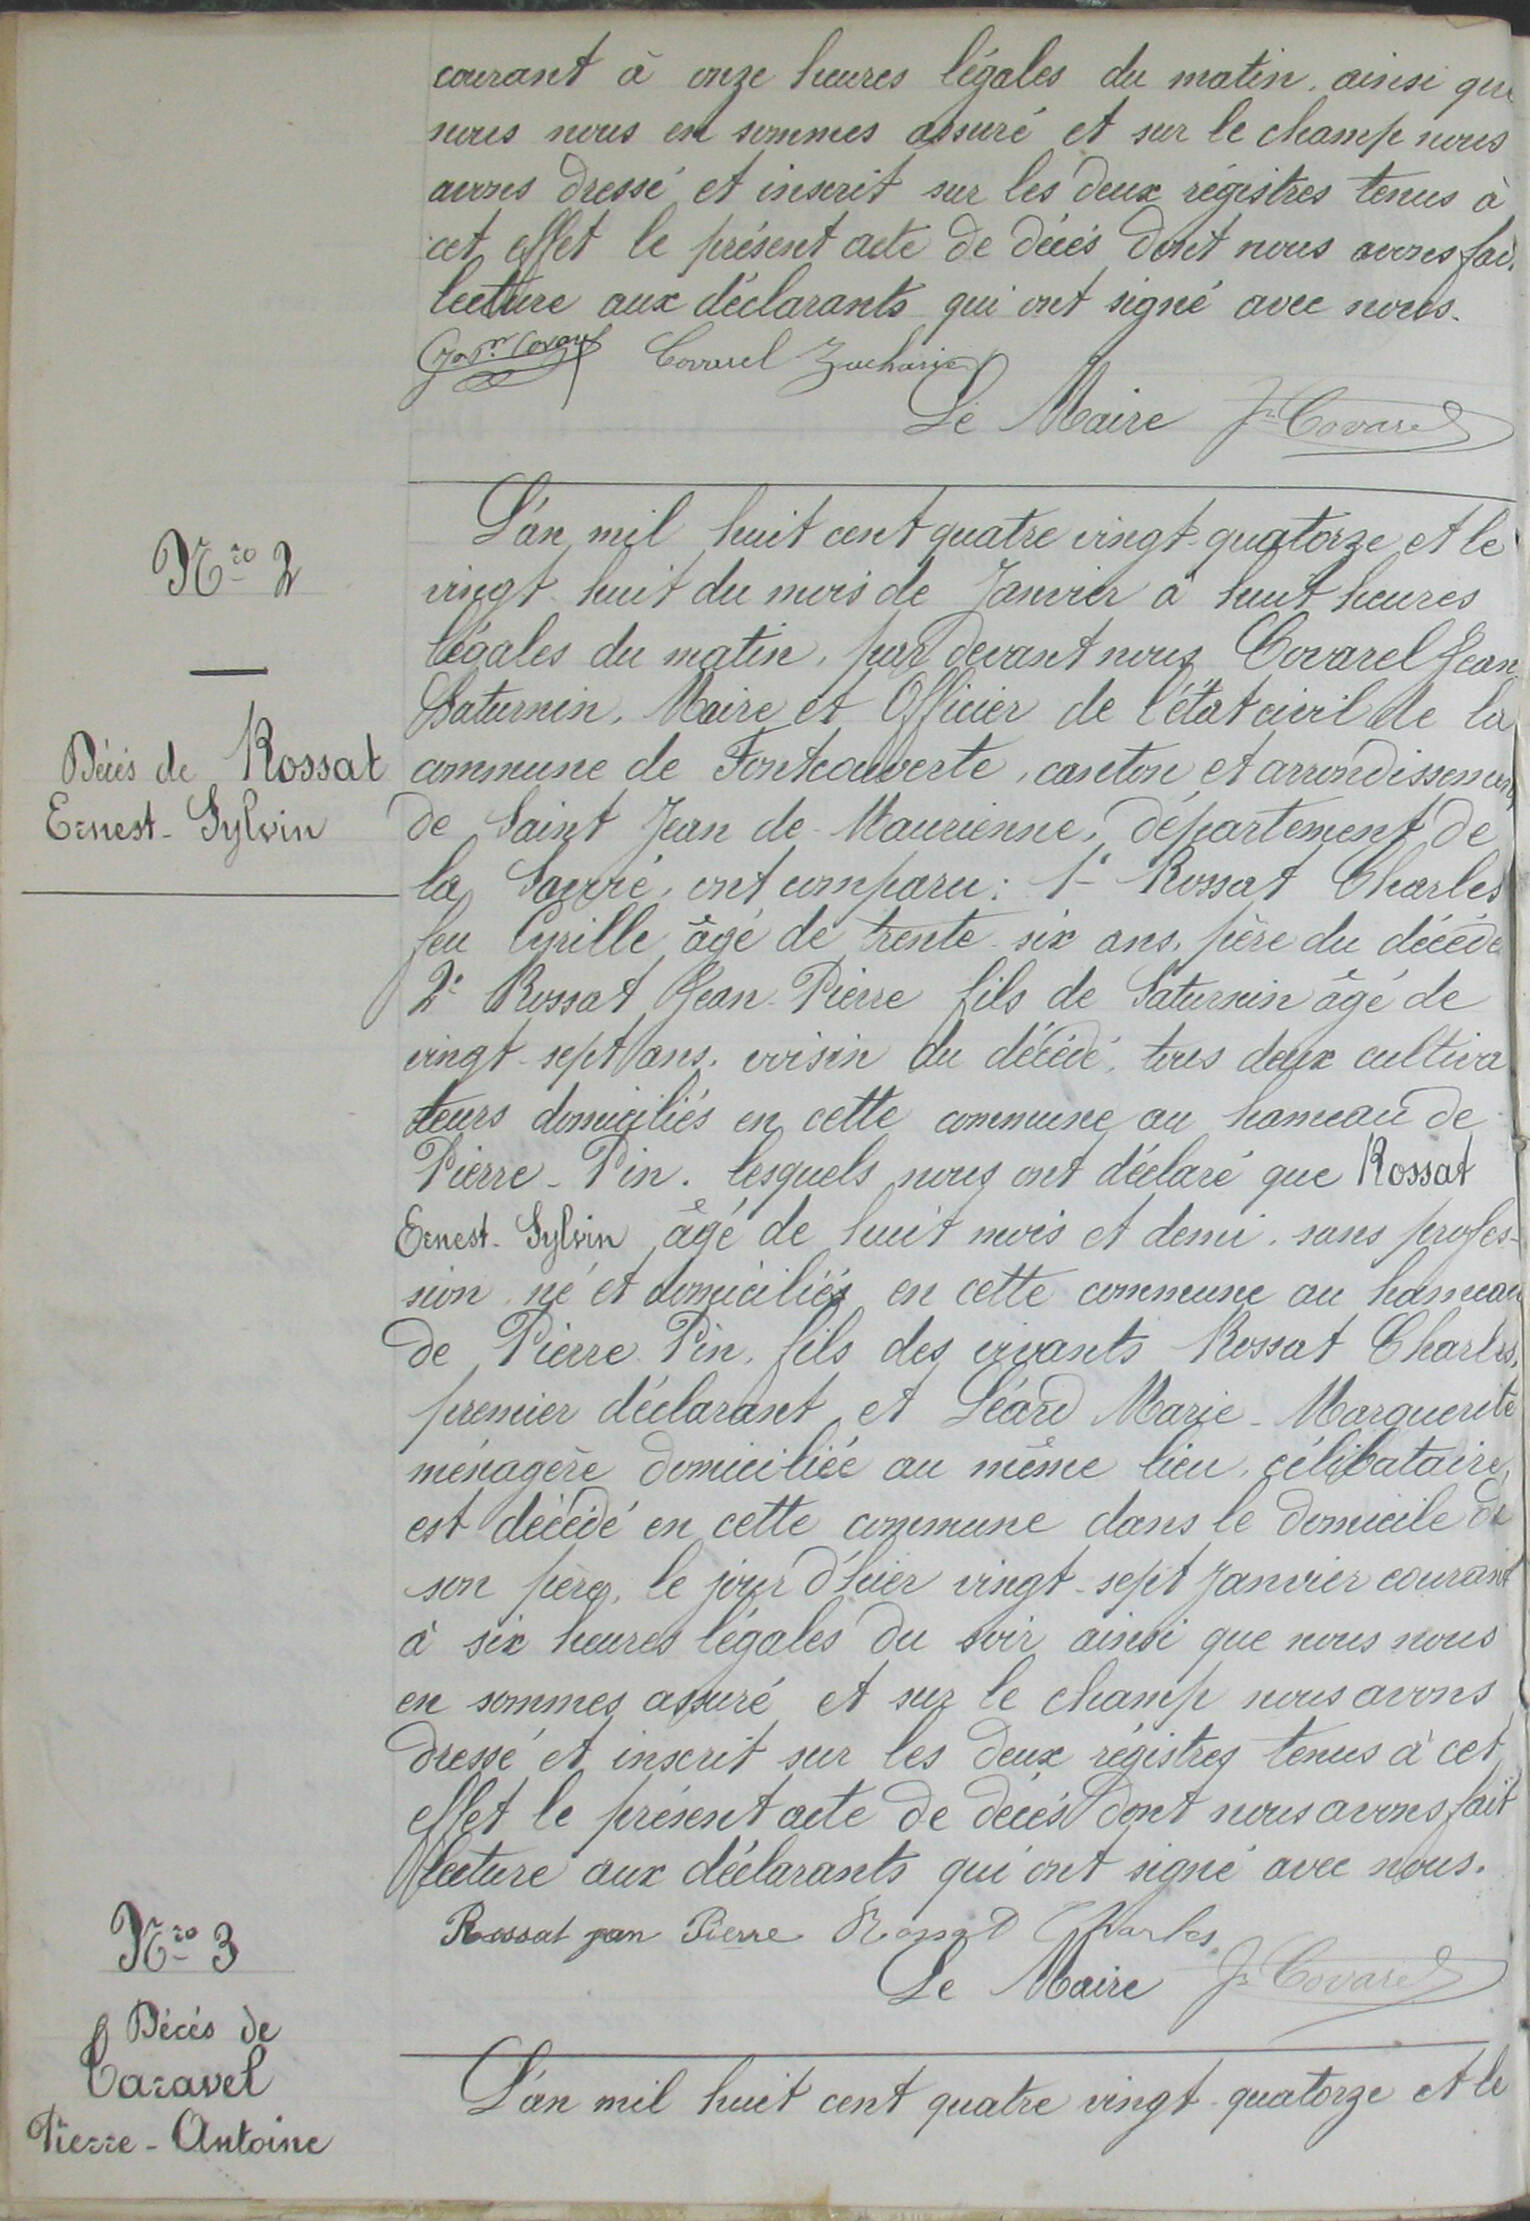 courant à onze heures légales du matin. ainsi que
nous nous en sommes assuré et sur le champ nous
avons dressé et inscrit sur les deux régistres tenus à
cet effet le présent acte de décés dont nous avons fai
lecture aux déclarants qui ont signé avec nous.
Covarel Zacharie
Le Maire Jn Covarel
Nro 2
Décés de Rossat
Ernest-Sylvin
L'an mil huit cent quatre vingt-quatorze et le
vingt-huit du mois de Janvier à huit heures
légales du matin, par devant nous Covarel Jean
Saturnin, Maire et Officier de l'état civil de la
commune de Fontcouverte, canton et arrondissement
de Saint Jean de Maurienne, département de
la Savoie, ont comparu: 1° Rossat Charles
feu Cyrille âgé de trente-six ans, père du décédé
2° Rossat Jean-Pierre fils de Saturnin âgé de
vingt-sept ans. voisin du décédé, tous deux cultiva
teurs domiciliés en cette commune au hameau de
Pierre-Pin. lesquels nous ont déclaré que Rossat
Ernest-Sylvin âgé de huit mois et demi. sans profes-
sion né et domiciliés en cette commune au hameau
de Pierre Pin, fils des vivants Rossat Charles,
premier déclarant et Léard Marie-Marguerite
ménagère domiciliée au même lieu, célibataire,
est décédé en cette commune dans le domicile de
son père, le jour d'hier vingt-sept Janvier courant
à six heures légales du soir ainsi que nous nous
en sommes assuré et sur le champ nous avons
dressé et inscrit sur les deux régistres tenus à cet
effet le présent acte de décés dont nous avons fait
lecture aux déclarants qui ont signé avec nous.
Rossat jan Pierre Rossat Charles
Le Maire Jn Covarel
Nro 3
Décés de
Caravel
Pierre-Antoine
L'an mil huit cent quatre vingt-quatorze et le